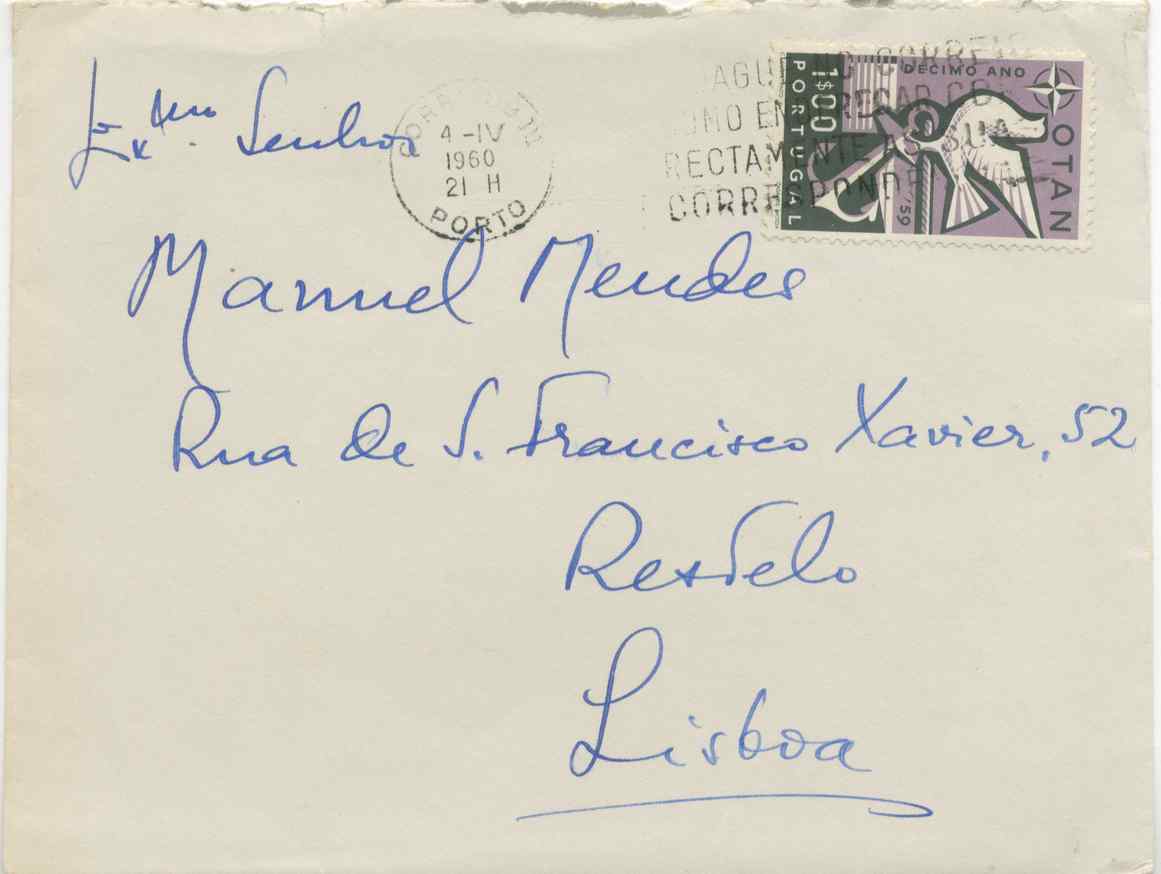 Exmo. Senhor
CORREIOS
4-IV
1960
21 H
PORTO
CORREIO
ENDEREÇAR CO
RECTAMENTE AS SUA
CORRESPONDE
DECIMO ANO
1$00
PORTUGAL
OTAN
59
Manuel Mendes
Rua de S. Francisco Xavier, 52
Restelo
Lisboa